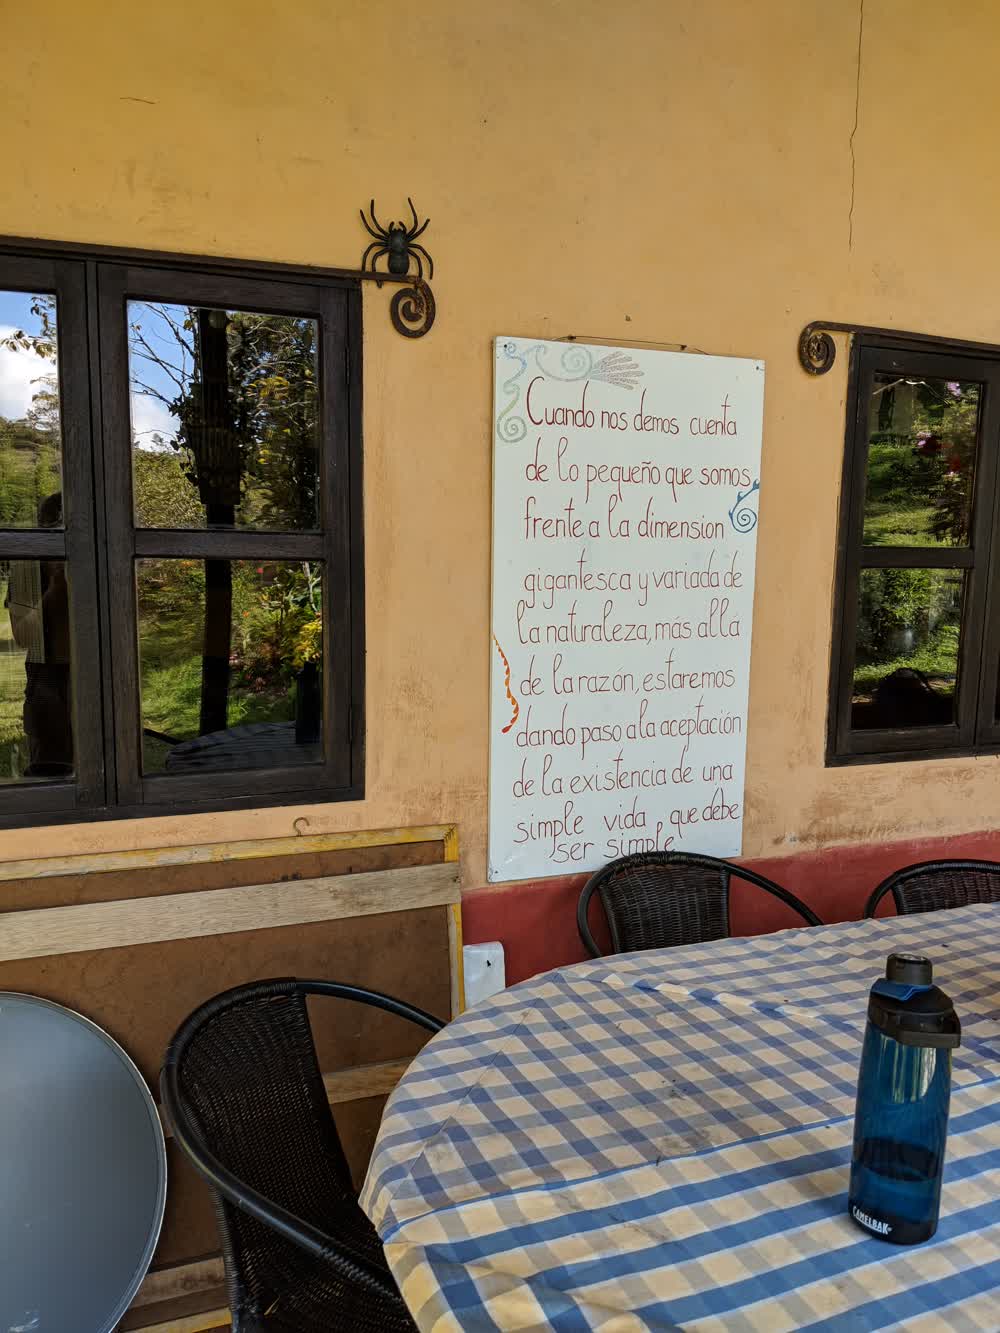 Cuando nos demos cuenta
de lo pequeño que somos
frente a la dimension
gigantesca y variada de
la naturaleza, más allá
de la razón, estaremos
dando paso a la aceptación
de la existencia de una
simple vida que debe
ser simple
CAMELBAK